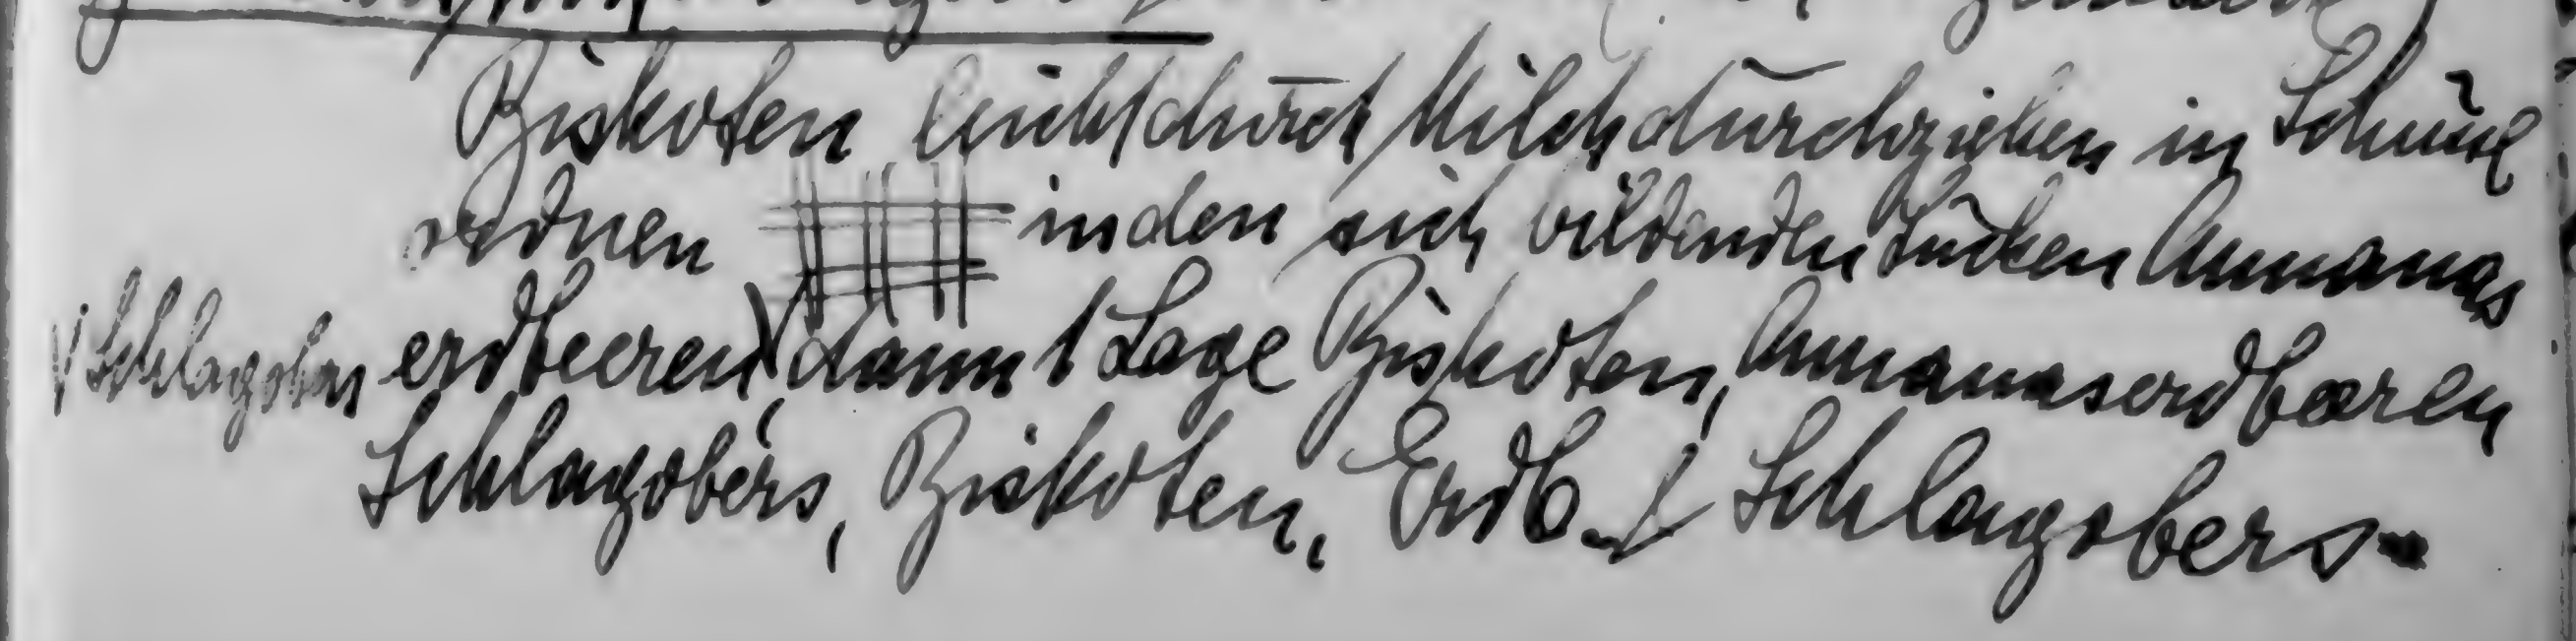 Biskoten leicht durch Milch durchziehen in Schüssel
ordnen in den sich bildenden Lücken Annanas
V Schlagobers erdbeeren V dann 1 Lage Biskoten, Annanaserdbeeren
Schlagobers, Biskoten, Erdb. Schlagobers